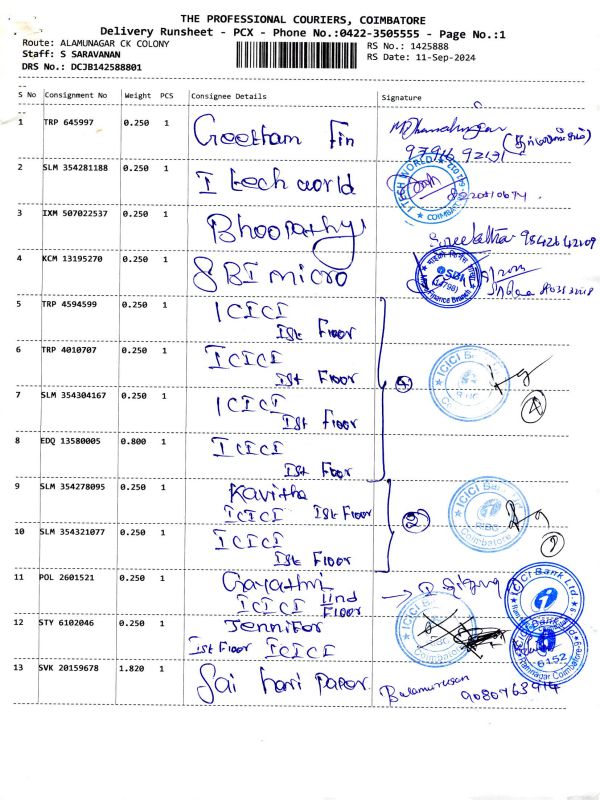 THE PROFESSIONAL COURIERS, COIMBATORE
Delivery Runsheet - PCX - Phone No.:0422-3505555 - Page No.:1
Route: ALAMUNAGAR CK COLONY
Staff: S SARAVANAN
DRS No.: DCJB142588801
RS No.: 1425888
RS Date: 11-Sep-2024
S No Consignment No Weight PCS Consignee Details Signature
1 TRP 645997 0.250 1 Gootham Fin
2 SLM 354281188 0.250 1 I tech world
I TECH WORLD
3 IXM 507022537 0.250 1 Bhoopathy
9842642109
4 KCM 13195270 0.250 1 SBI micro
SBI
5 TRP 4594599 0.250 1 ICICI
Ist Floor
6 TRP 4010707 0.250 1 ICICI
Ist Floor
4
ICICI
4
7 SLM 354304167 0.250 1 ICICI
Ist Floor
8 EDQ 13580005 0.800 1 ICICI
Ist Floor
9 SLM 354278095 0.250 1 Kavitha
ICICI Ist Floor
2
ICICI Ba
Coimbatore
10 SLM 354321077 0.250 1 ICICI
Ist Floor
2
11 POL 2601521 0.250 1 Gayathri
ICICI IInd
Floor
ICICI Bank Ltd.
12 STY 6102046 0.250 1 Jennifor
Ist Floor ICICI
ICICI
Coimbatore
6152
Ramnagar Coimbatore
13 SVK 20159678 1.820 1 Sai hari Paper
Balamurugan
9080763914